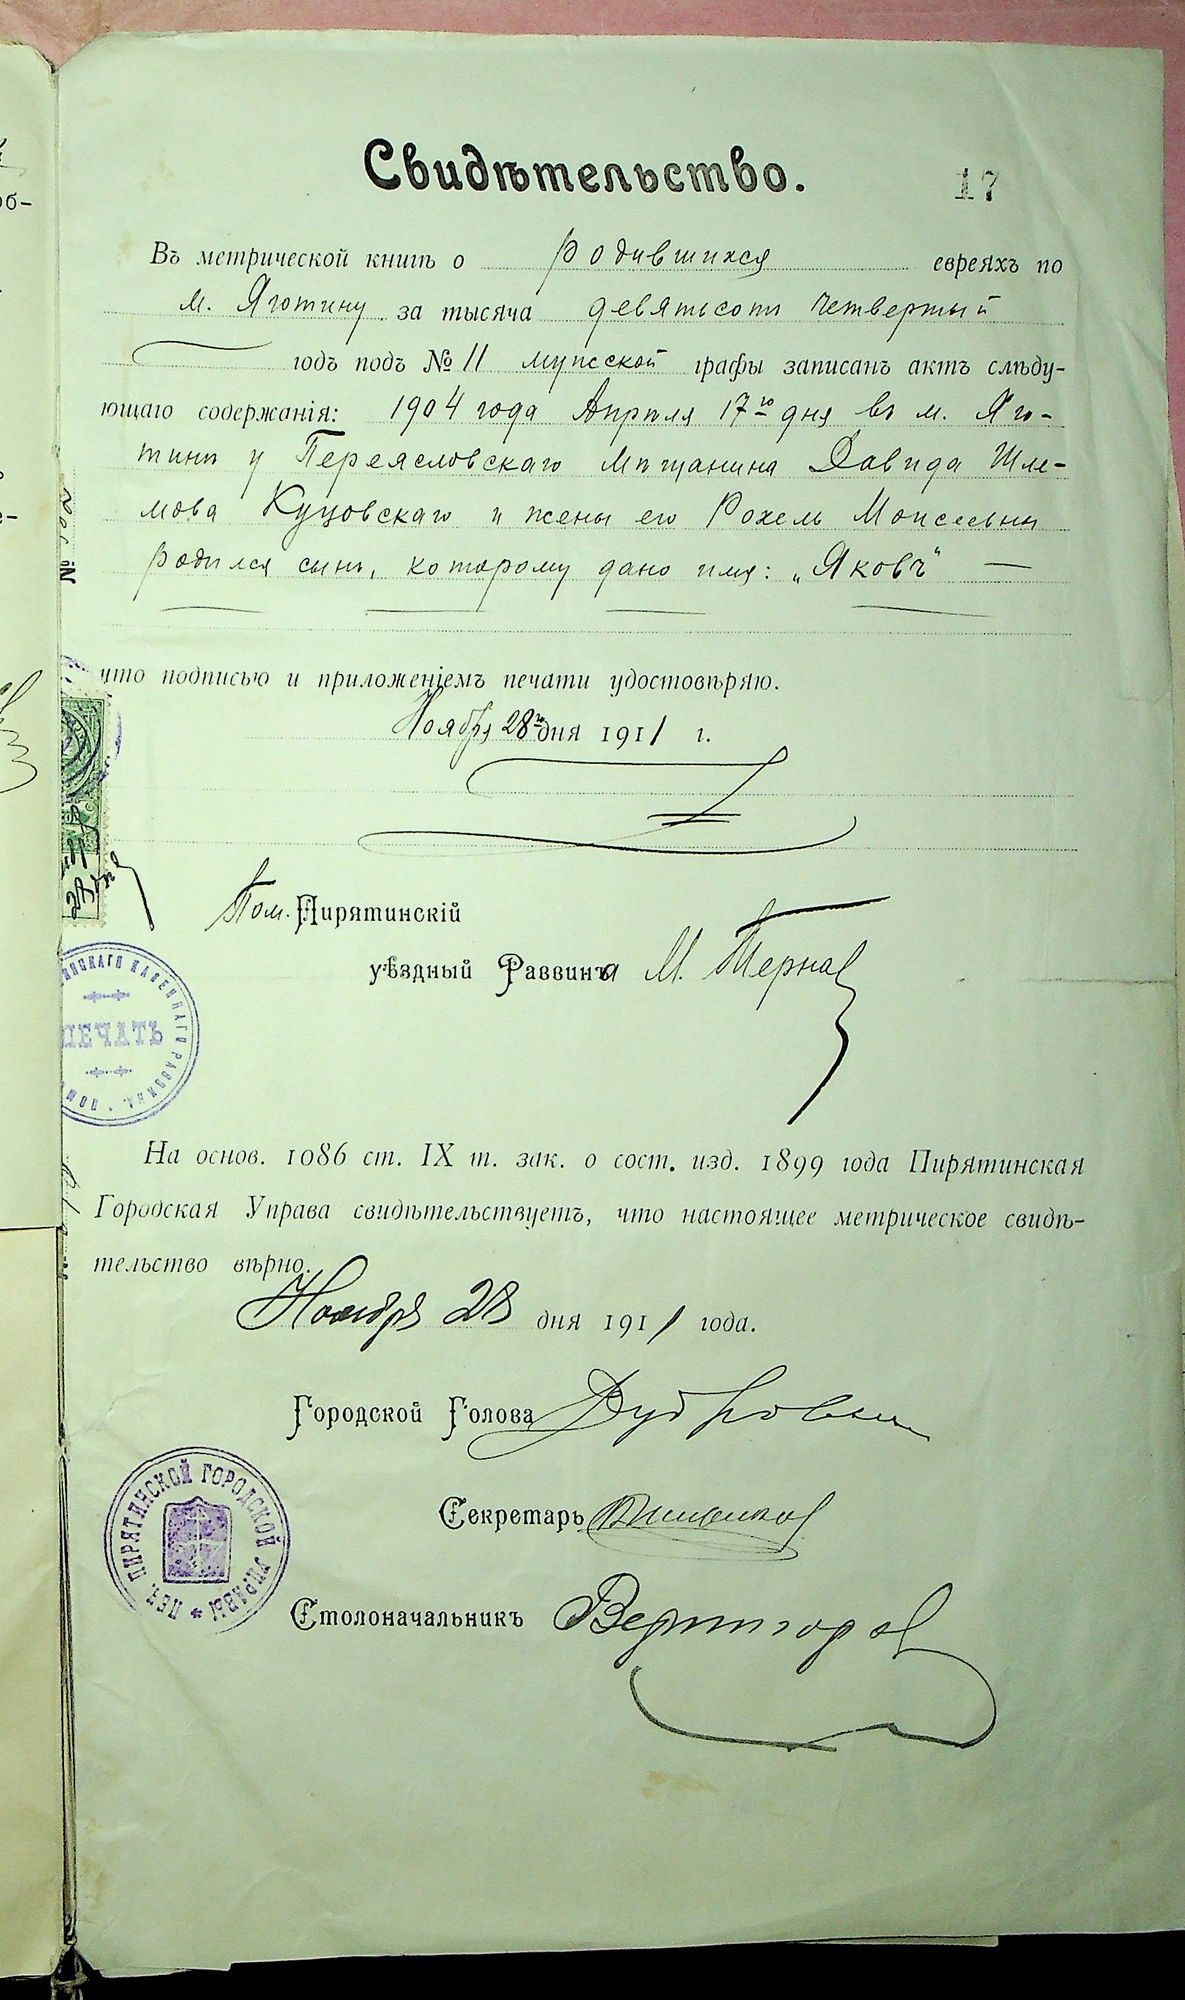 Свидѣтельство.
17
Въ метрической книгѣ о родившихся евреяхъ по
м. Яготину за тысяча девятьсотъ четвертый
годъ подъ № 11 мужской графы записанъ актъ слѣду-
ющаго содержанія: 1904 года Апрѣля 17го дня въ м. Яго-
тинѣ у Переясловскаго мѣщанина Давида Шле-
мова Куцовскаго и жены его Рохель Моисеевны
родился сынъ, которому дано имя: „Яковъ"
что подписью и приложеніемъ печати удостовѣряю.
Ноября 28го дня 1911 г.
Пом. Пирятинскій
уѣздный Раввина М. Терна
КАЗЕННАГО РАВВИНА
ПЕЧАТЬ
На основ. 1086 ст. IX т. зак. о сост. изд. 1899 года Пирятинская
Городская Управа свидѣтельствуетъ, что настоящее метрическое свидѣ-
тельство вѣрно.
Ноября 28 дня 1911 года.
Городской Голова
Секретарь
ПЕЧ. ПИРЯТИНСКОЙ ГОРОДСКОЙ УПРАВЫ
Столоначальникъ